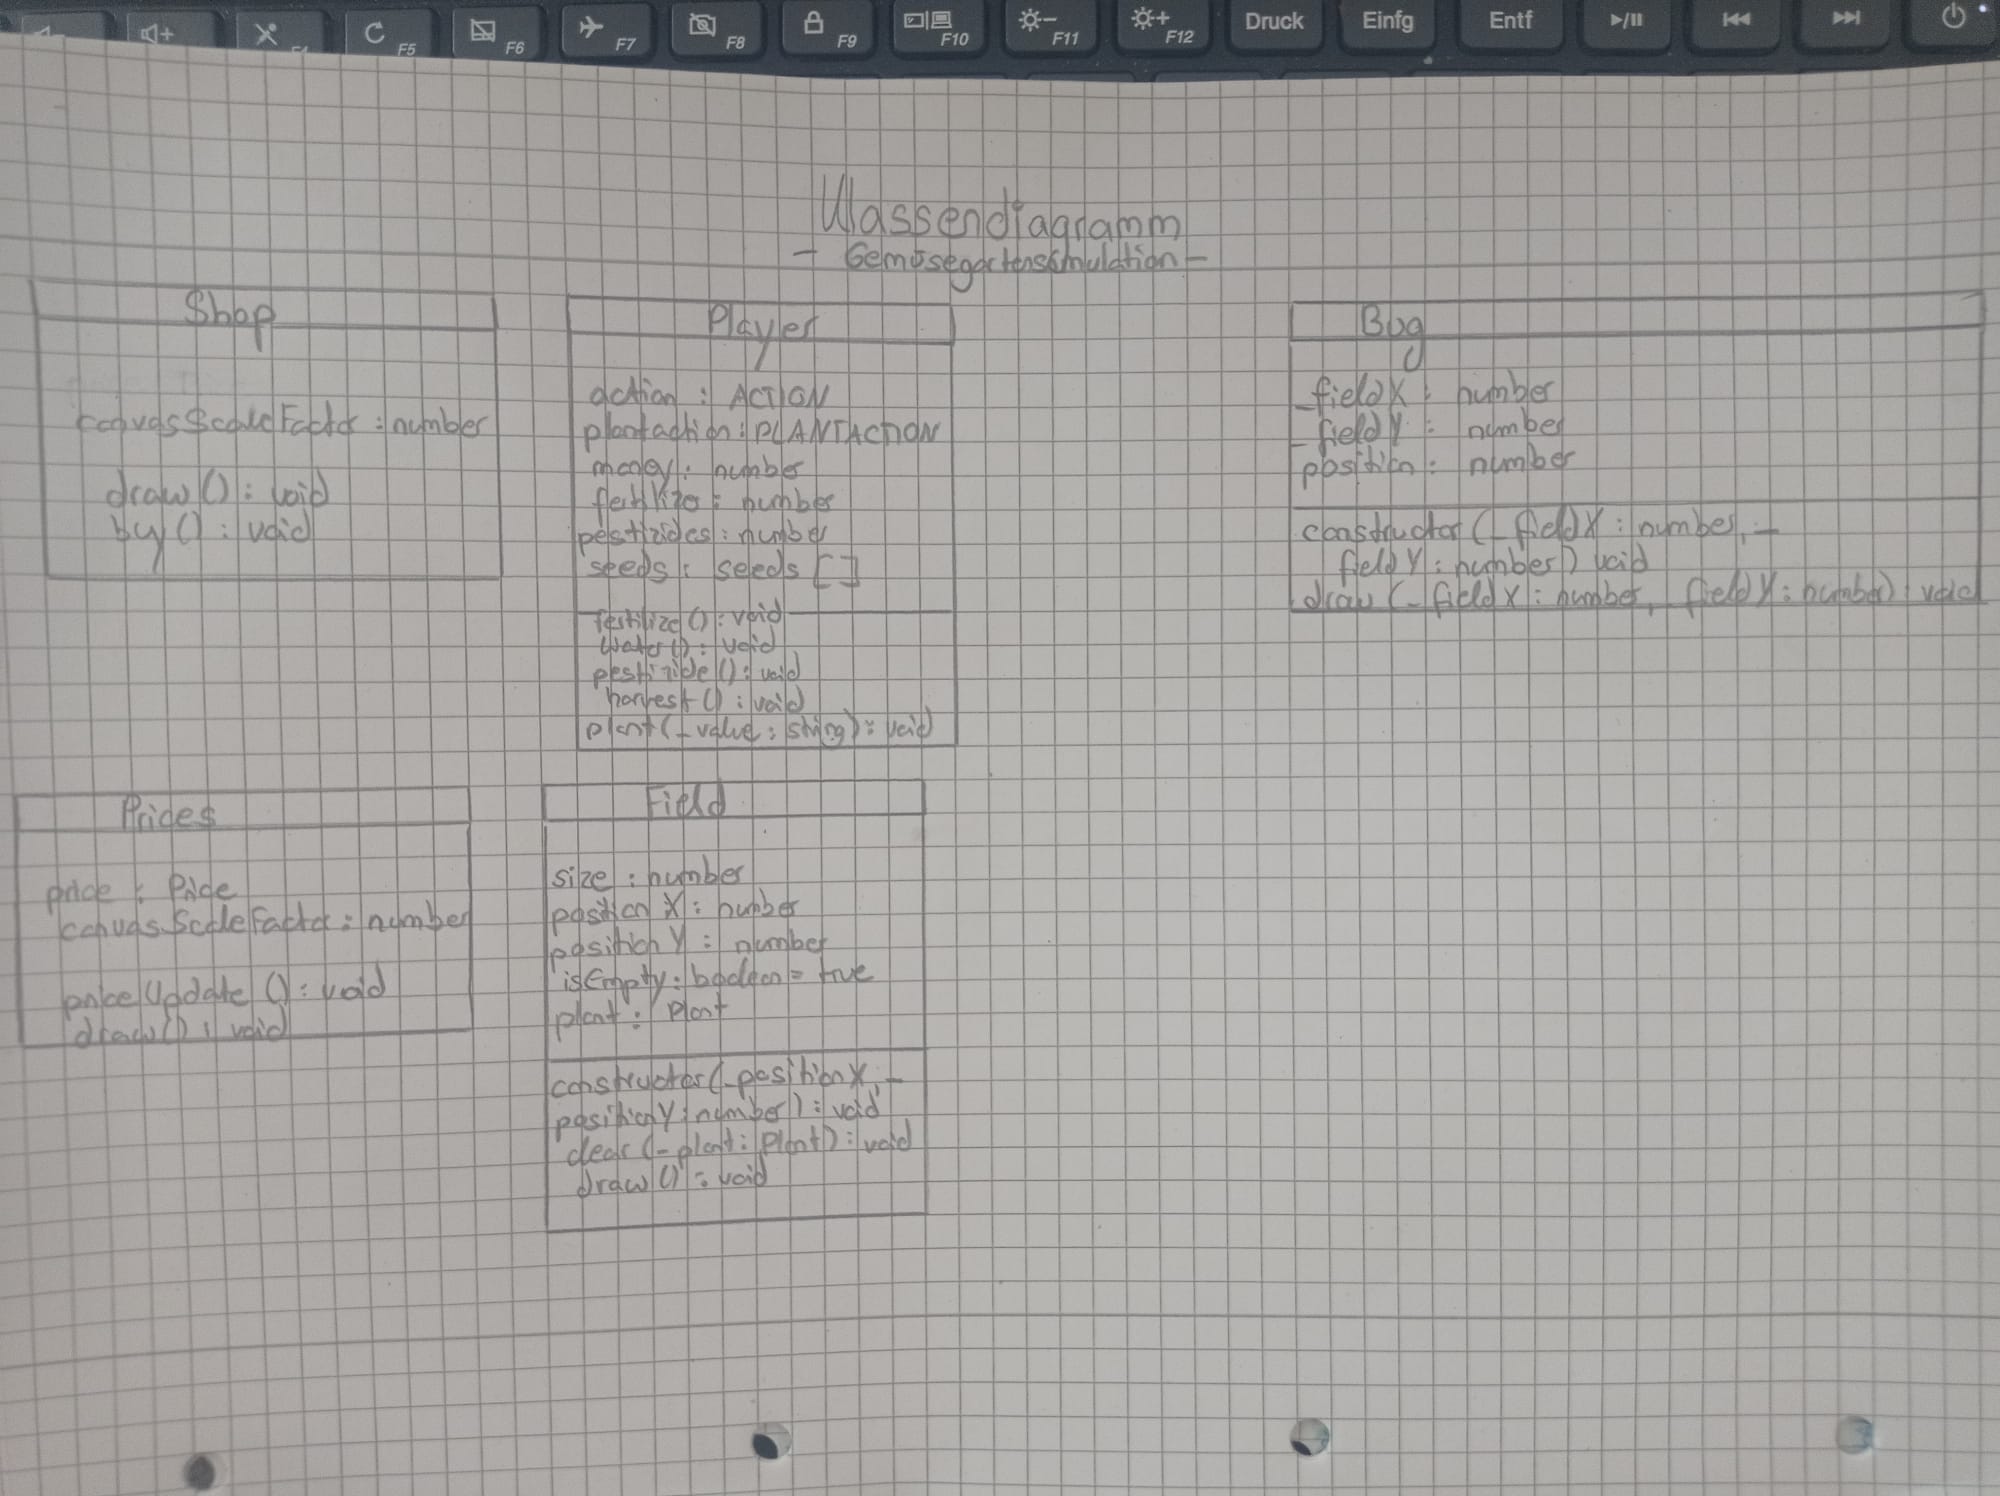 F5
F6
F7
F8
F9
F10
F11
F12
Druck
Einfg
Entf
Klassendiagramm
- Gemüsegartensimulation -
Shop
canvasScaleFactor : number
draw() : void
by() : void
Player
action : ACTION
plantaction : PLANTACTION
money : number
fertilizer : number
pestizides : number
seeds : seeds []
fertilize() : void
water() : void
pestizide() : void
harvest() : void
plant(_value : string) : void
Bug
_fieldX : number
_fieldY : number
position : number
constructor (_fieldX : number, _
fieldY : number) void
draw (_fieldX : number, fieldY : number) : void
Prices
price : Price
canvasScaleFactor : number
priceUpdate () : void
draw() : void
Field
size : number
position X : number
position Y : number
isEmpty : boolean = true
plant : Plant
constructor(_positionX, _
positionY : number) : void
clear (_plant : Plant) : void
draw () : void